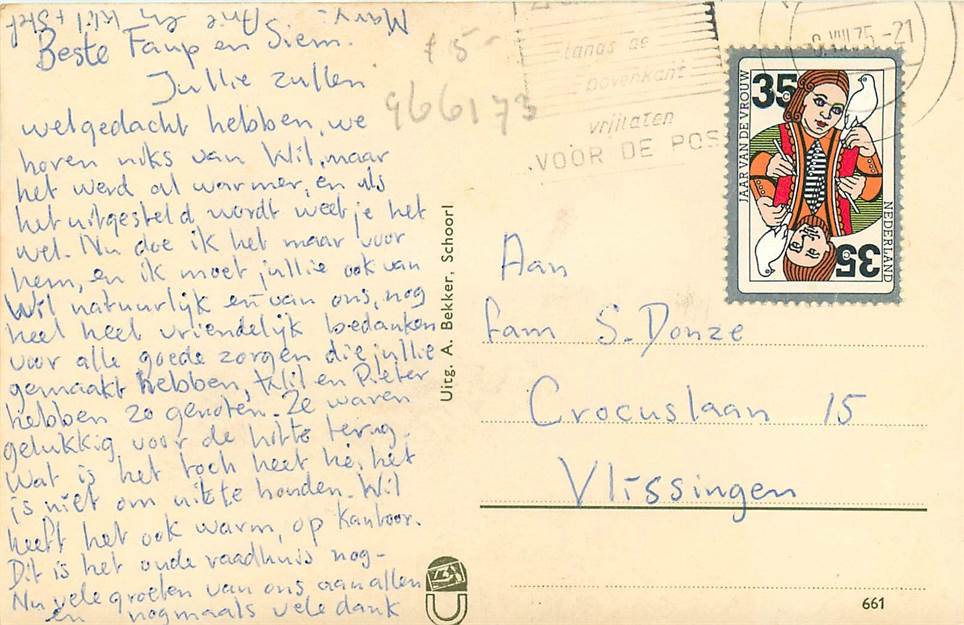 Beste Faup en Siem.
Jullie zullen
welgedacht hebben, we
horen niks van Wil, maar
het werd al warmer, en als
het uitgesteld wordt weet je het
wel. Nu doe ik het maar voor
hem, en ik moet jullie ook van
Wil natuurlijk en van ons, nog
heel heel vriendelijk bedanken
voor alle goede zorgen die jullie
gemaakt hebben, Wil en Pieter
hebben zo genoten. Ze waren
gelukkig voor de hitte terug.
Wat is het toch heet hè, het
is niet om uit te houden. Wil
heeft het ook warm, op kantoor.
Dit is het oude raadhuis nog -
Nu vele groeten van ons aan allen
en nogmaals vele dank
Mary - Arie en Wil + Stef
£ 5 -
966173
langs de
bovenkant
vrijlaten
VOOR DE POS
VIII 75 - 21
35c
JAAR VAN DE VROUW
NEDERLAND
35c
Uitg. A. Bekker, Schoorl
Aan
fam S. Donze
Crocuslaan 15
Vlissingen
661